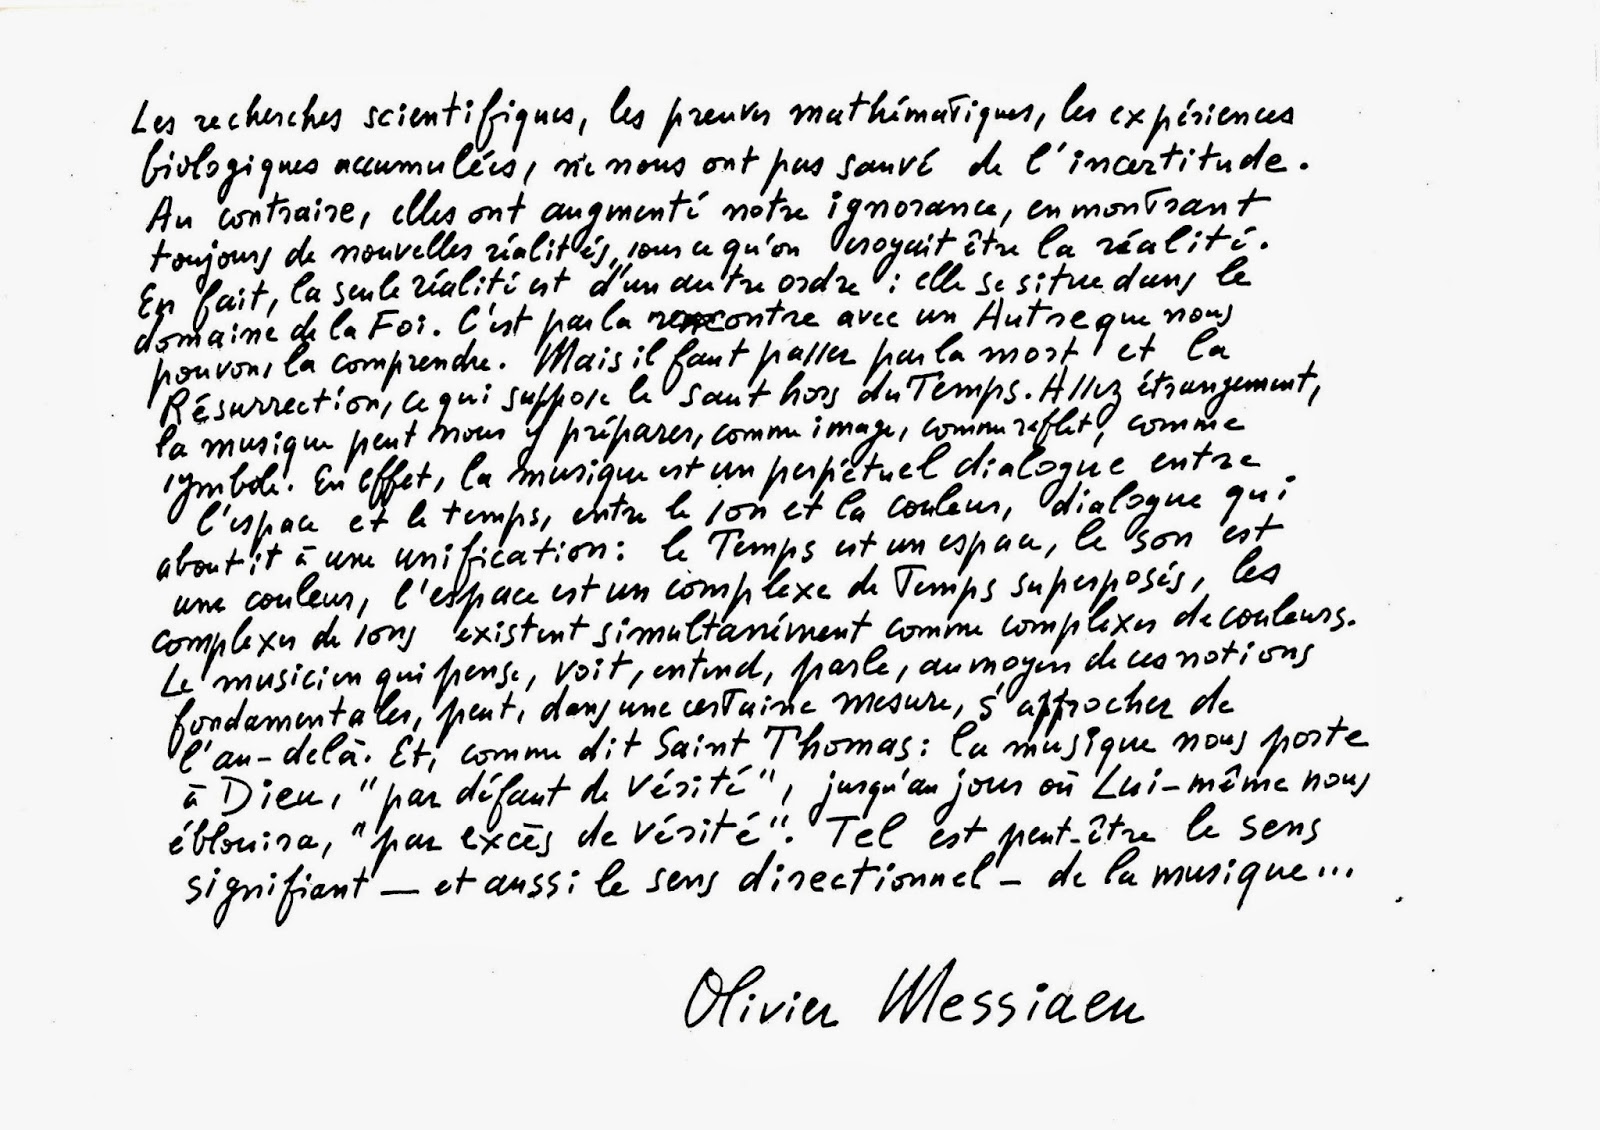 Les recherches scientifiques, les preuves mathématiques, les expériences
biologiques accumulées, ne nous ont pas sauvé de l'incertitude.
Au contraire, elles ont augmenté notre ignorance, en montrant
toujours de nouvelles réalités, sous ce qu'on croyait être la réalité.
En fait, la seule réalité est d'un autre ordre : elle se situe dans le
domaine de la Foi. C'est par la rencontre avec un Autre que nous
pouvons la comprendre. Mais il faut passer par la mort et la
Résurrection, ce qui suppose le saut hors du Temps. Assez étrangement,
la musique peut nous y préparer, comme image, comme reflet, comme
symbole. En effet, la musique est un perpétuel dialogue entre
l'espace et le temps, entre le son et la couleur, dialogue qui
aboutit à une unification : le Temps est un espace, le son est
une couleur, l'espace est un complexe de Temps superposés, les
complexes de sons existent simultanément comme complexes de couleurs.
Le musicien qui pense, voit, entend, parle, au moyen de ces notions
fondamentales, peut, dans une certaine mesure, s'approcher de
l'au-delà. Et, comme dit Saint Thomas : la musique nous porte
à Dieu, "par défaut de Vérité", jusqu'au jour où Lui-même nous
éblouira, "par excès de Vérité". Tel est peut-être le sens
signifiant — et aussi le sens directionnel — de la musique...
Olivier Messiaen